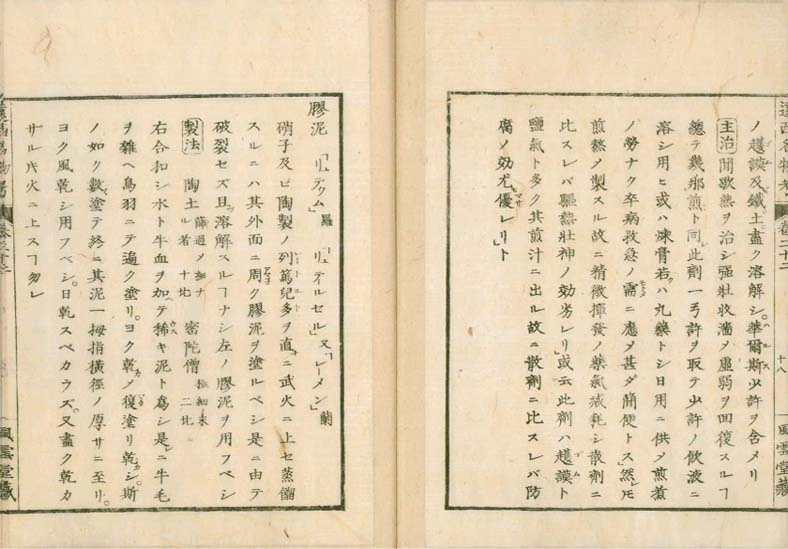 遠西名物考 卷三十二 十八 風雲堂藏
ノ護謨及鐵土盡ク溶解シ。華爾斯少許ヲ含メリ
主治 間歇熱ヲ治シ強壯收濇ノ虛弱ヲ回復スルヿ
總テ幾那煎ト同シ此剤一弓許ヲ取テ少許ノ飲液ニ
溶シ用ヒ或ハ煉膏若クハ丸藥トシ日用ニ供メ煎煮
ノ勞ナク卒病救急ノ需ニ應メ甚ダ簡便トス」然レ𪜈
煎熬メ製スル故ニ精微揮發ノ藥氣減耗シ散劑ニ
比スレバ驅熱壯神ノ効劣レリ」或云此劑ハ護謨ト
鹽氣ト多ク其煎汁ニ出ル故ニ散劑ニ比スレバ防
腐ノ効尤優レリト
膠泥 「リュテウム」羅 「リュテイルセル」又「レーメン」蘭
硝子及ビ陶製ノ列篤兒多ヲ直ニ武火ニ上セ蒸餾
スルニハ其外面ニ周ク膠泥ヲ塗ルベシ是ニ由テ
破裂セズ且ツ溶解スルヿナシ左ノ膠泥ヲ用フベシ
製法 陶土 篩過メ細ナル者 十比 密陀僧 極細末 二比
右合和シ水ト牛血ヲ加テ稀キ泥ト爲シ是ニ牛毛
ヲ雜ヘ鳥羽ニテ遍ク塗リ。ヨク乾メ復塗リ乾シ。斯
ノ如ク數塗テ終ニ其泥一拇指橫徑ノ厚サニ至リ。
ヨク風乾シ用フベシ。日乾スベカラズ。又盡ク乾カ
サル𪜈火ニ上スヿ勿レ
風雲堂藏